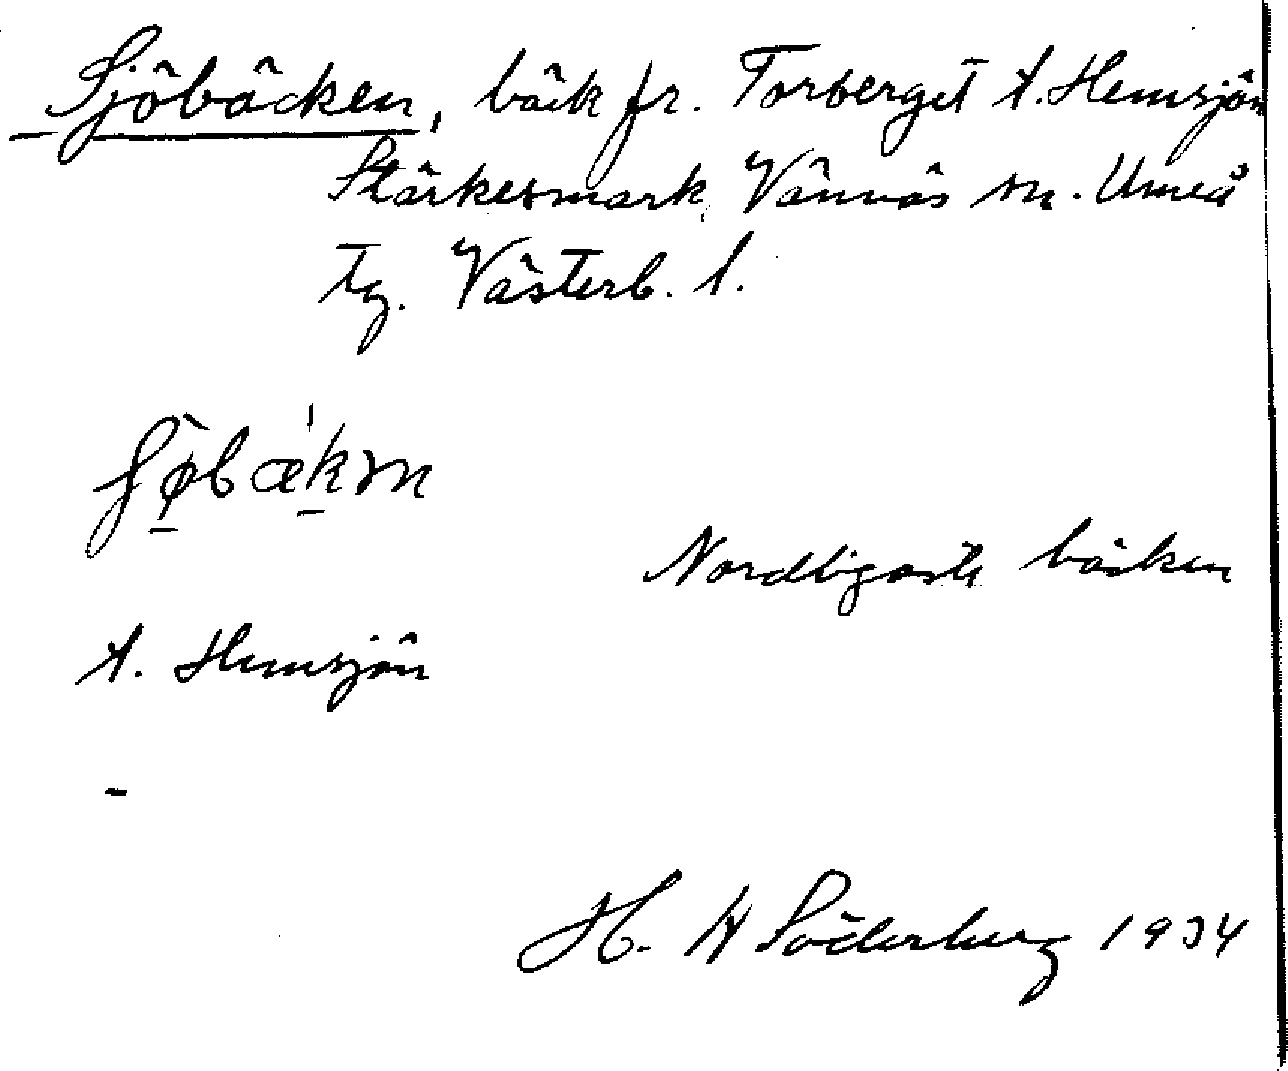 Sjöbäcken, bäck fr. Torberget t. Hemsjön
Stärkesmark, Vännäs sn. Umeå
tg. Västerb. l.
Nordligaste bäcken
t. Hemsjön
-
H. W Söderberg 1934